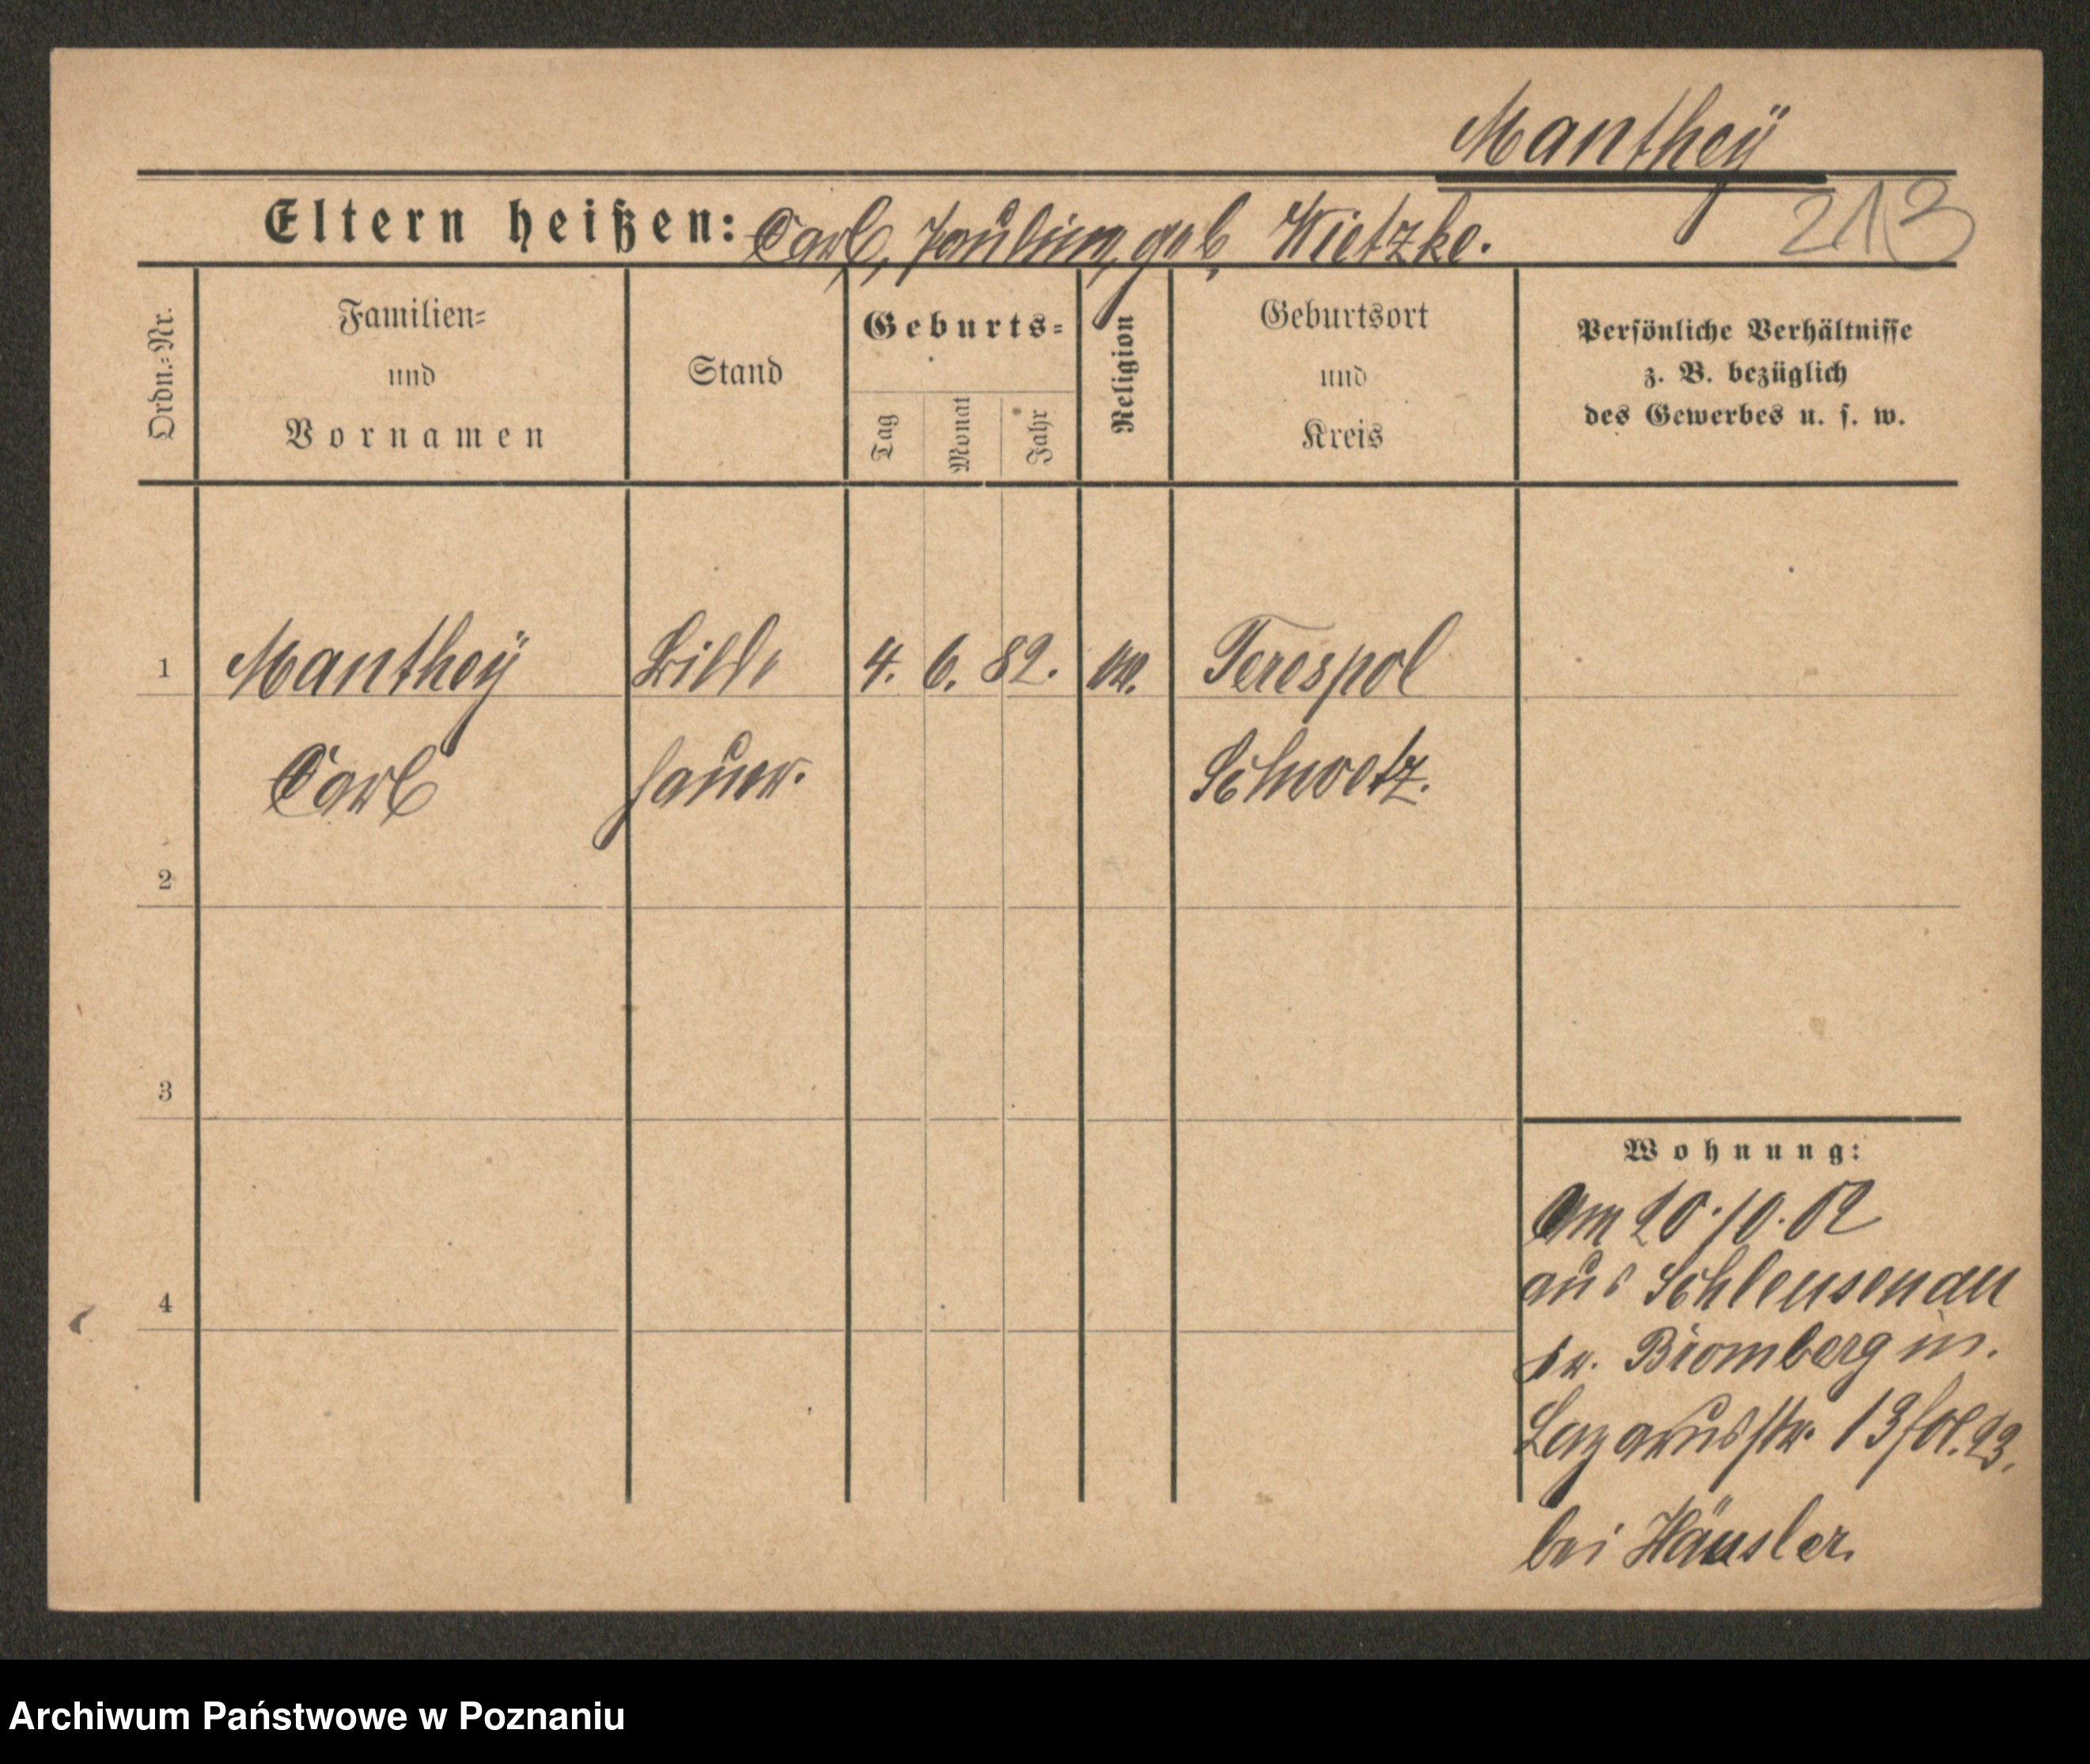 Mantheÿ
Eltern heißen: Carl, Pauline, geb. Wietzke.
213
Ordn.-Nr.
Familien-
und
Vornamen
Stand
Geburts-
Tag
Monat
Jahr
Religion
Geburtsort
und
Kreis
Persönliche Verhältnisse
z. B. bezüglich
des Gewerbes u. s. w.
1 Mantheÿ Bild 4. 6. 82. ev. Terespol
Carl hauer. Schwetz.
2
3
4
Wohnung:
Am 20.10.02
aus Schleusenau
Kr. Bromberg in.
Lazarusstr. 13 fol. 23.
bei Häusler.
Archiwum Państwowe w Poznaniu